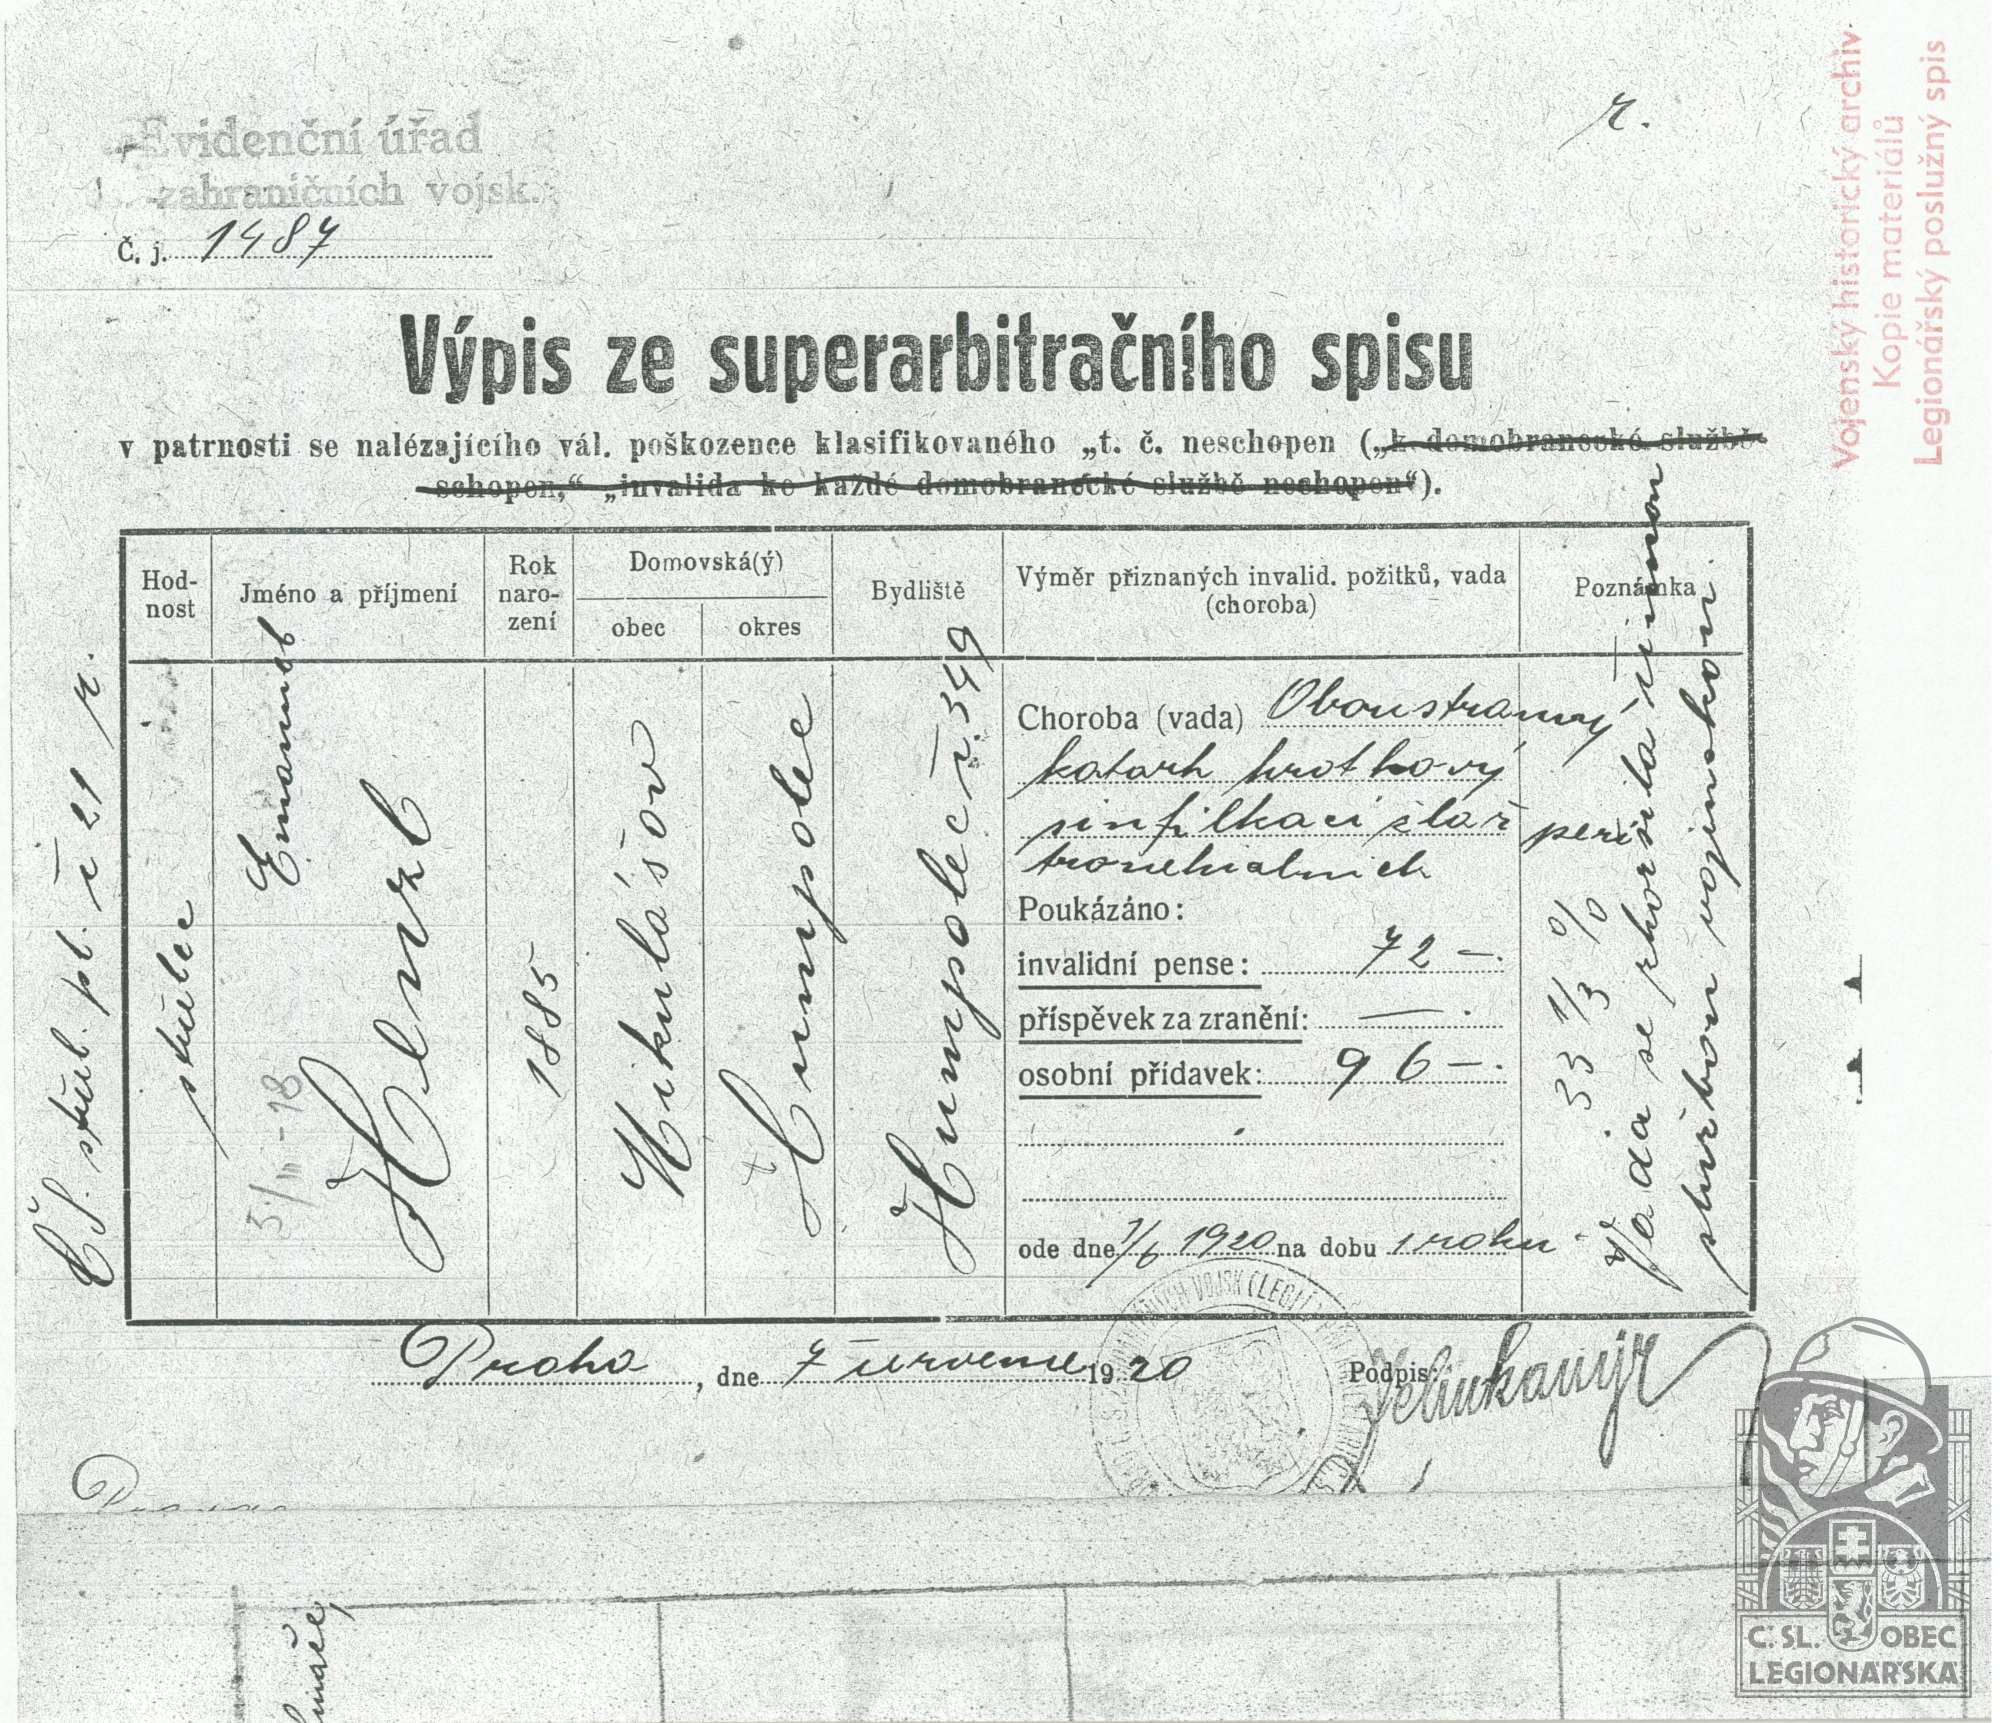 Evidenční úřad
zahraničních vojsk.
Č. j. 1487
r.
Vojenský historický archiv
Kopie materiálů
Legionářský poslužný spis
Výpis ze superarbitračního spisu
v patrnosti se nalézajícího vál. poškozence klasifikovaného „t. č. neschopen („k domobranecké službě
schopen,“ „invalida ke každé domobranecké službě neschopen“).
Hod-
nost
Jméno a příjmení
Rok
naro-
zení
Domovská(ý)
obec
okres
Bydliště
Výměr přiznaných invalid. požitků, vada
(choroba)
Poznámka
Čs. střel. pl. č 21 r.
střelec
Emanuel
Henzl
5/III-18
1885
Mikulášov
Humpolec
Humpolec č. 349
Choroba (vada) Oboustranný
katarh hrotkový
s infilkací žlaz peri
bronchialnich
Poukázáno:
invalidní pense: 72 –.
příspěvek za zranění: — .
osobní přídavek: 96 –.
ode dne 1/6 1920 na dobu 1 roku.
33 1/3 %
Vada se zhoršila činnou
službou vojenskou.
Praha, dne 7 července 1920
Podpis:
C. SL. OBEC
LEGIONÁŘSKÁ